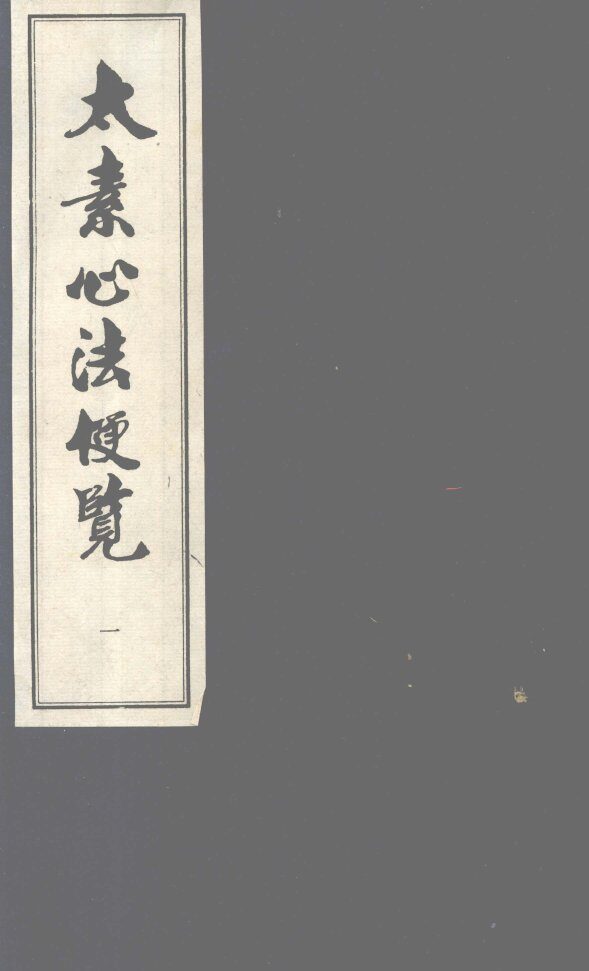 太素心法便覽
一